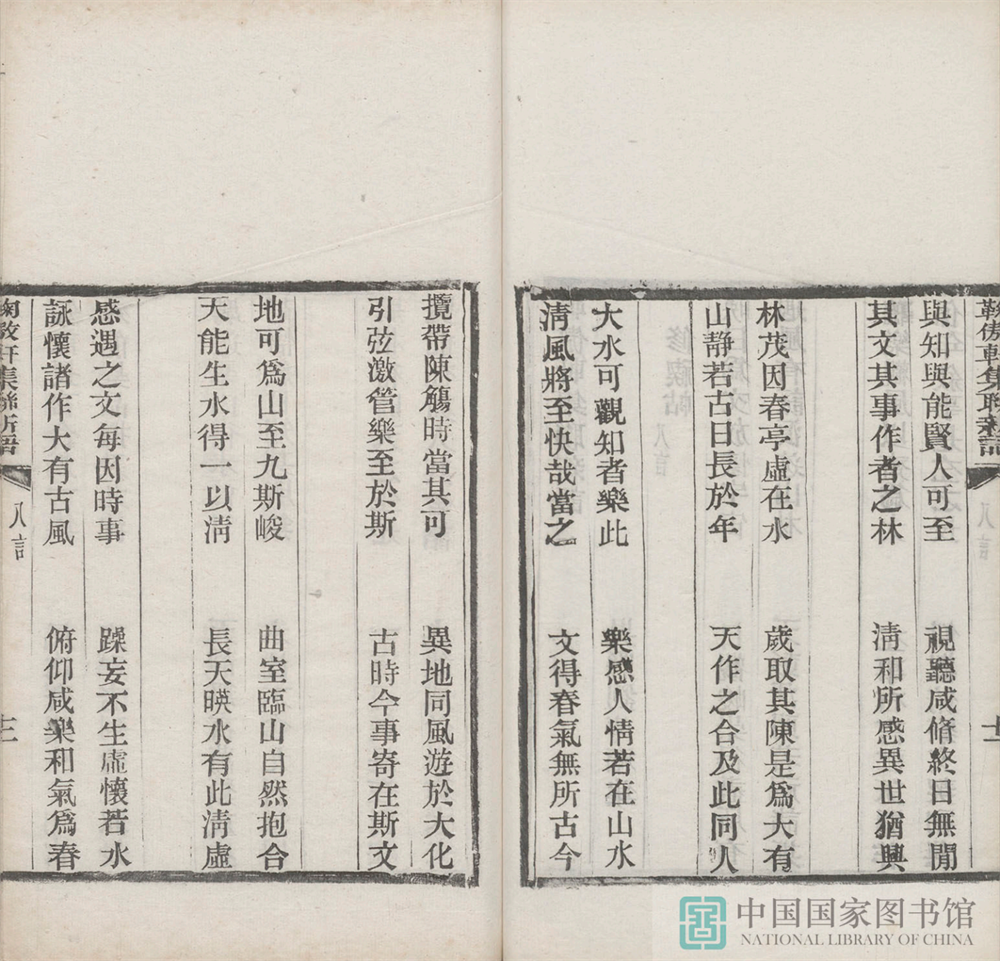 與知與能賢人可至 視聽咸脩終日無閒
其文其事作者之林 清和所感異世猶興
林茂因春亭虛在水 歲取其陳是爲大有
山靜若古日長於年 天作之合及此同人
大水可觀知者樂此 樂感人情若在山水
清風將至快哉當之 文得春氣無所古今
攬帶陳觴時當其可 異地同風遊於大化
引弦激管樂至於斯 古時今事寄在斯文
地可爲山至九斯峻 曲室臨山自然抱合
天能生水得一以清 長天暎水有此清虛
感遇之文每因時事 躁妄不生虛懷若水
詠懷諸作大有古風 俯仰咸樂和氣爲春
八言
中国国家图书馆
NATIONAL LIBRARY OF CHINA